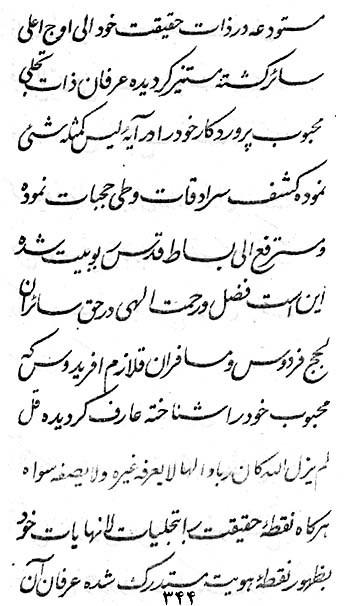 مستودعه در ذات حقیقت خود الی اوج اعلی
سائر گشته مستنیر گردیده عرفان ذات تجلی
محبوب پروردگار خود را در آیهٔ لیس کمثله شئ
نموده کشف سرادقات و طی حجبات نموده
و مسترفع الی بساط قدس ربوبیت شده
این است فضل و رحمت الهی در حق سائران
لجج فردوس و مسافران قلازم افریدوس که
محبوب خود را شناخته عارف گردیده قل
لم یزل الله کان ربا و الها لا یعرفه غیره ولا یصفه سواه
هرگاه نقطهٔ حقیقت را بتجلیات لانهایات خود
بظهور نقطهٔ هویت مستدرک شده عرفان آن
۳۴۴